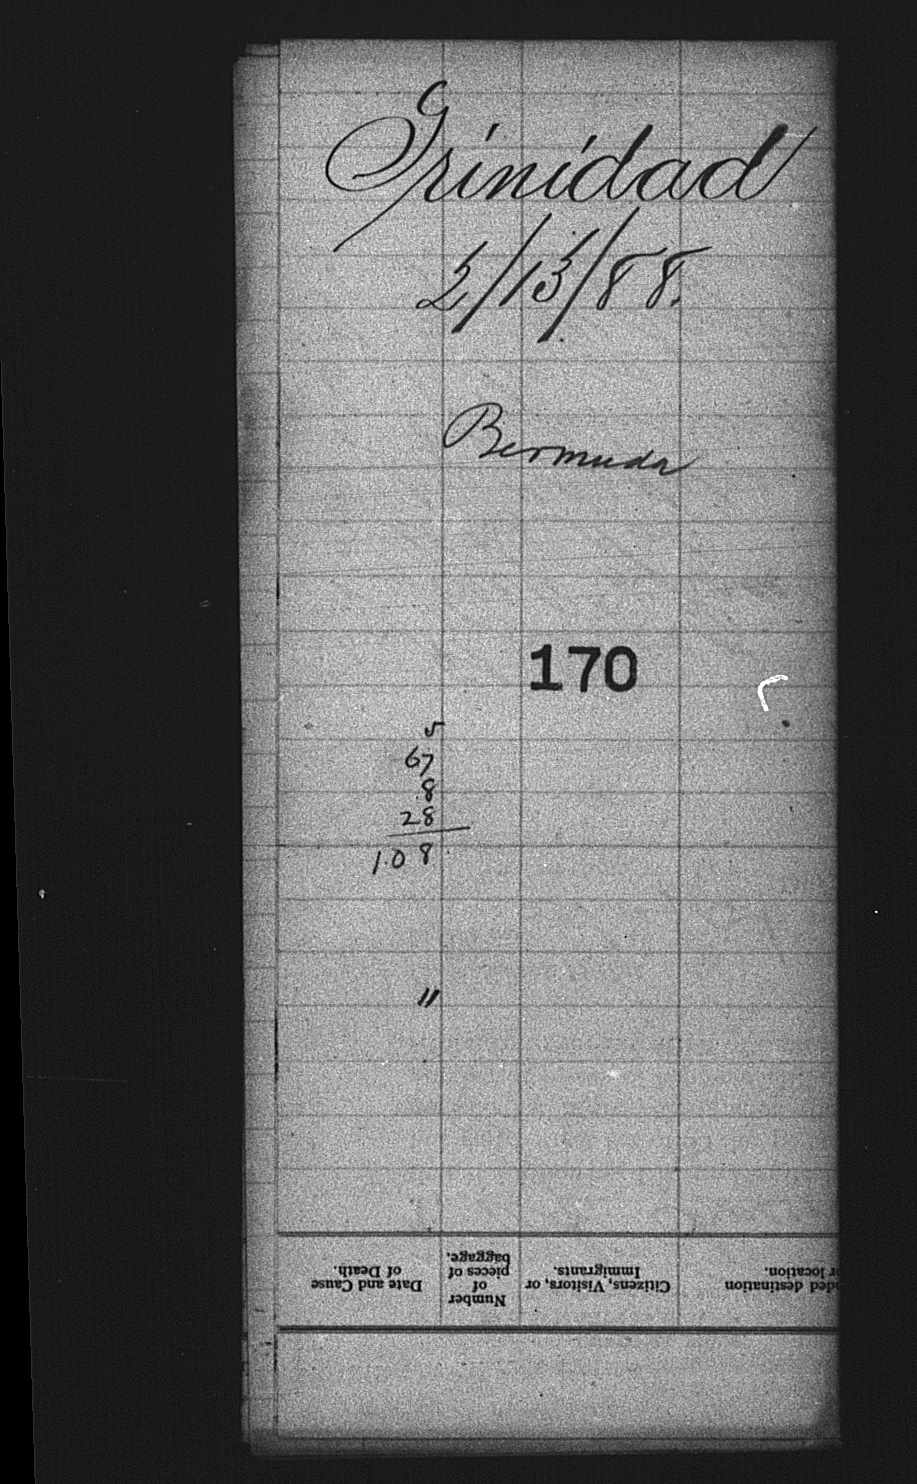 Trinidad
2/13/88.
Bermuda
170
5
67
8
28
108
"
Date and Cause
of Death.
Number
of
pieces of
baggage.
Citizens, Visitors, or
Immigrants.
ded destination
r location.